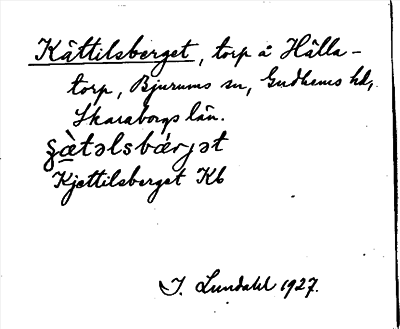 Kättilsberget, torp å Hälla-
torp, Bjurums sn, Gudhems hd,
Skaraborgs län.
ʂæ̀təlsbærjət
Kjettilsberget Kb
I. Lundahl 1927.